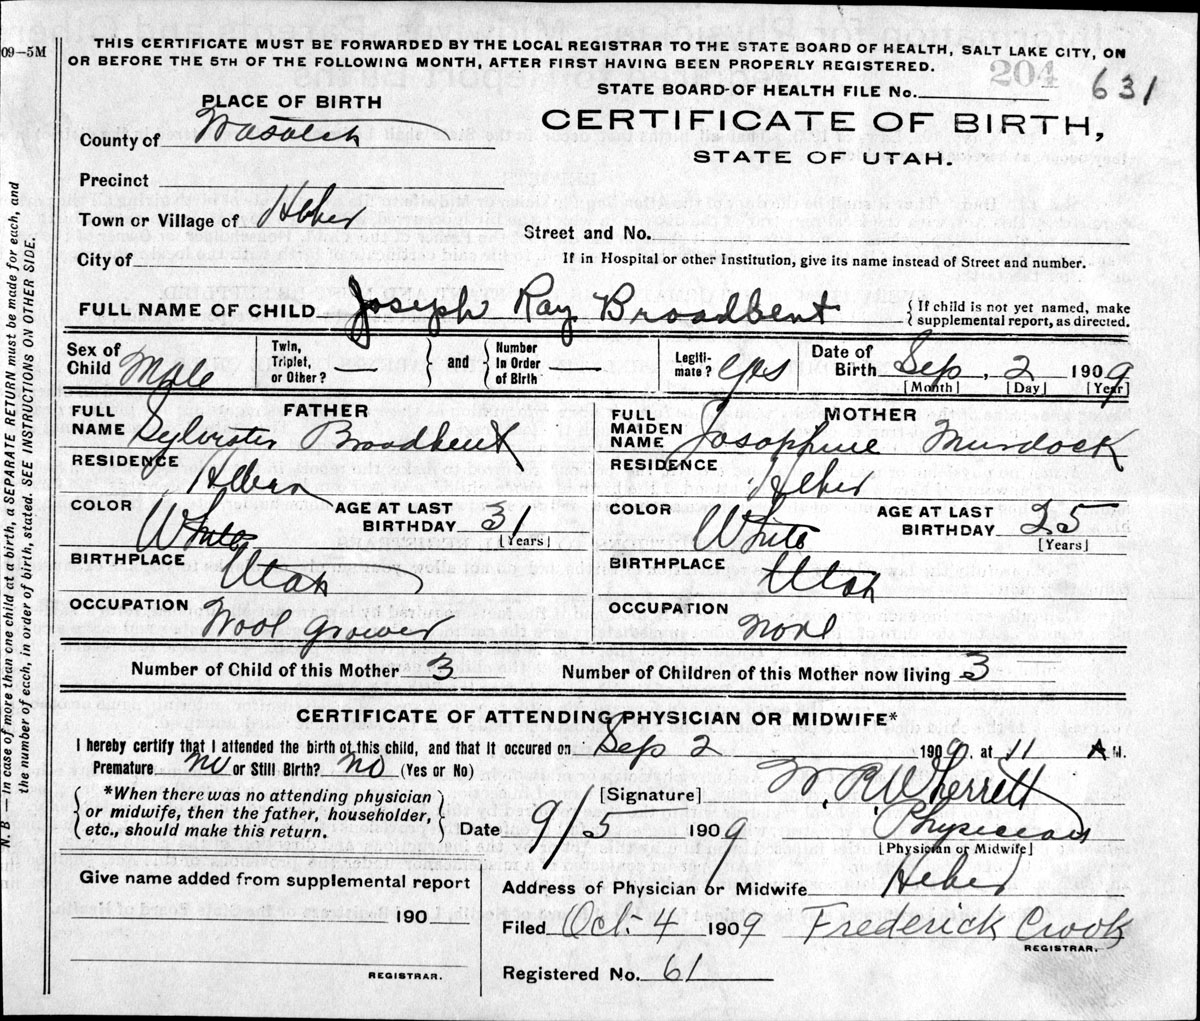 09–5M
THIS CERTIFICATE MUST BE FORWARDED BY THE LOCAL REGISTRAR TO THE STATE BOARD OF HEALTH, SALT LAKE CITY, ON
OR BEFORE THE 5TH OF THE FOLLOWING MONTH, AFTER FIRST HAVING BEEN PROPERLY REGISTERED.
204
STATE BOARD OF HEALTH FILE No. 631
PLACE OF BIRTH
County of Wasatch
CERTIFICATE OF BIRTH,
STATE OF UTAH.
Precinct
Town or Village of Heber
Street and No.
City of
If in Hospital or other Institution, give its name instead of Street and number.
FULL NAME OF CHILD Joseph Ray Broadbent { If child is not yet named, make supplemental report, as directed.
Sex of Child Male Twin, Triplet, or Other? — } and { Number In Order of Birth — Legiti-mate? yes Date of Birth Sep. 2 1909
[Month] [Day] [Year]
FATHER
FULL NAME Sylvester Broadbent
RESIDENCE Heber
COLOR White AGE AT LAST BIRTHDAY 31
[Years]
BIRTHPLACE Utah
OCCUPATION Wool Grower
MOTHER
FULL MAIDEN NAME Josephine Murdock
RESIDENCE Heber
COLOR White AGE AT LAST BIRTHDAY 25
[Years]
BIRTHPLACE Utah
OCCUPATION None
Number of Child of this Mother 3 Number of Children of this Mother now living 3
CERTIFICATE OF ATTENDING PHYSICIAN OR MIDWIFE*
I hereby certify that I attended the birth of this child, and that it occured on Sep 2 1909, at 11 A M.
Premature no or Still Birth? no (Yes or No)
W. R. Wherritt
[Signature]
*When there was no attending physician
or midwife, then the father, householder,
etc., should make this return.
Date 9/5 1909 Physician
[Physician or Midwife]
Give name added from supplemental report
190
REGISTRAR.
Address of Physician or Midwife Heber
Filed Oct. 4 1909 Frederick Crook
REGISTRAR.
Registered No. 61
N. B — In case of more than one child at a birth, a SEPARATE RETURN must be made for each, and
the number of each, in order of birth, stated. SEE INSTRUCTIONS ON OTHER SIDE.